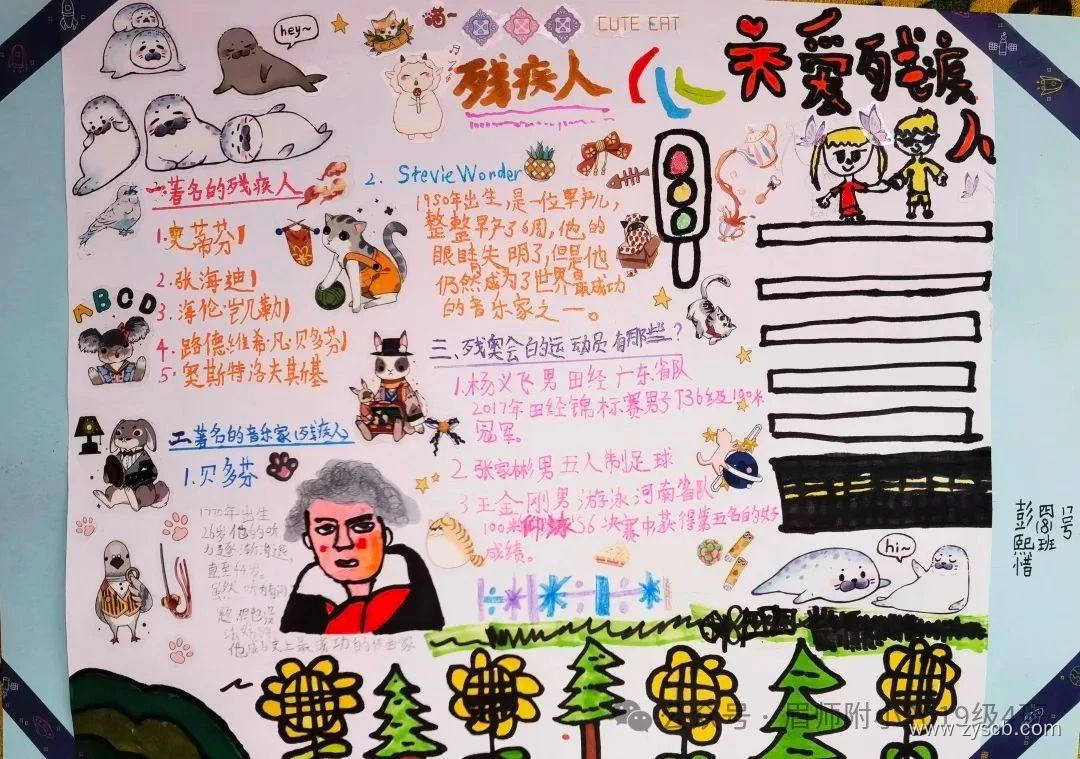 hey~
喵~
CUTE CAT
残疾人
关爱残疾人
一.著名的残疾人
1.史蒂芬
2.张海迪
3.海伦·凯勒
4.路德维希·凡·贝多芬
5.奥斯特洛夫斯基
ABCD
二.著名的音乐家(残疾人)
1.贝多芬
1770年出生
26岁他的听
力逐渐衰退
直至44岁。
虽然听力有问
题
他成为史上最成功的作曲家
2. Stevie Wonder
1950年出生,是一位早产儿,
整整早产了6周,他的
眼睛失明了,但是他
仍然成为了世界最成功
的音乐家之一。
三、残奥会的运动员有那些?
1.杨义飞 男 田经 广东省队
2017年田经锦标赛男子T36级100米
冠军。
2.张家彬 男 五人制足球
3.王金刚 男 游泳 河南省队
100米仰泳S6决赛中获得第五名的好
成绩。
hi~
17号
四(8)班
彭熙惜
公众号·眉师附小2019级4班
www.zyscb.com